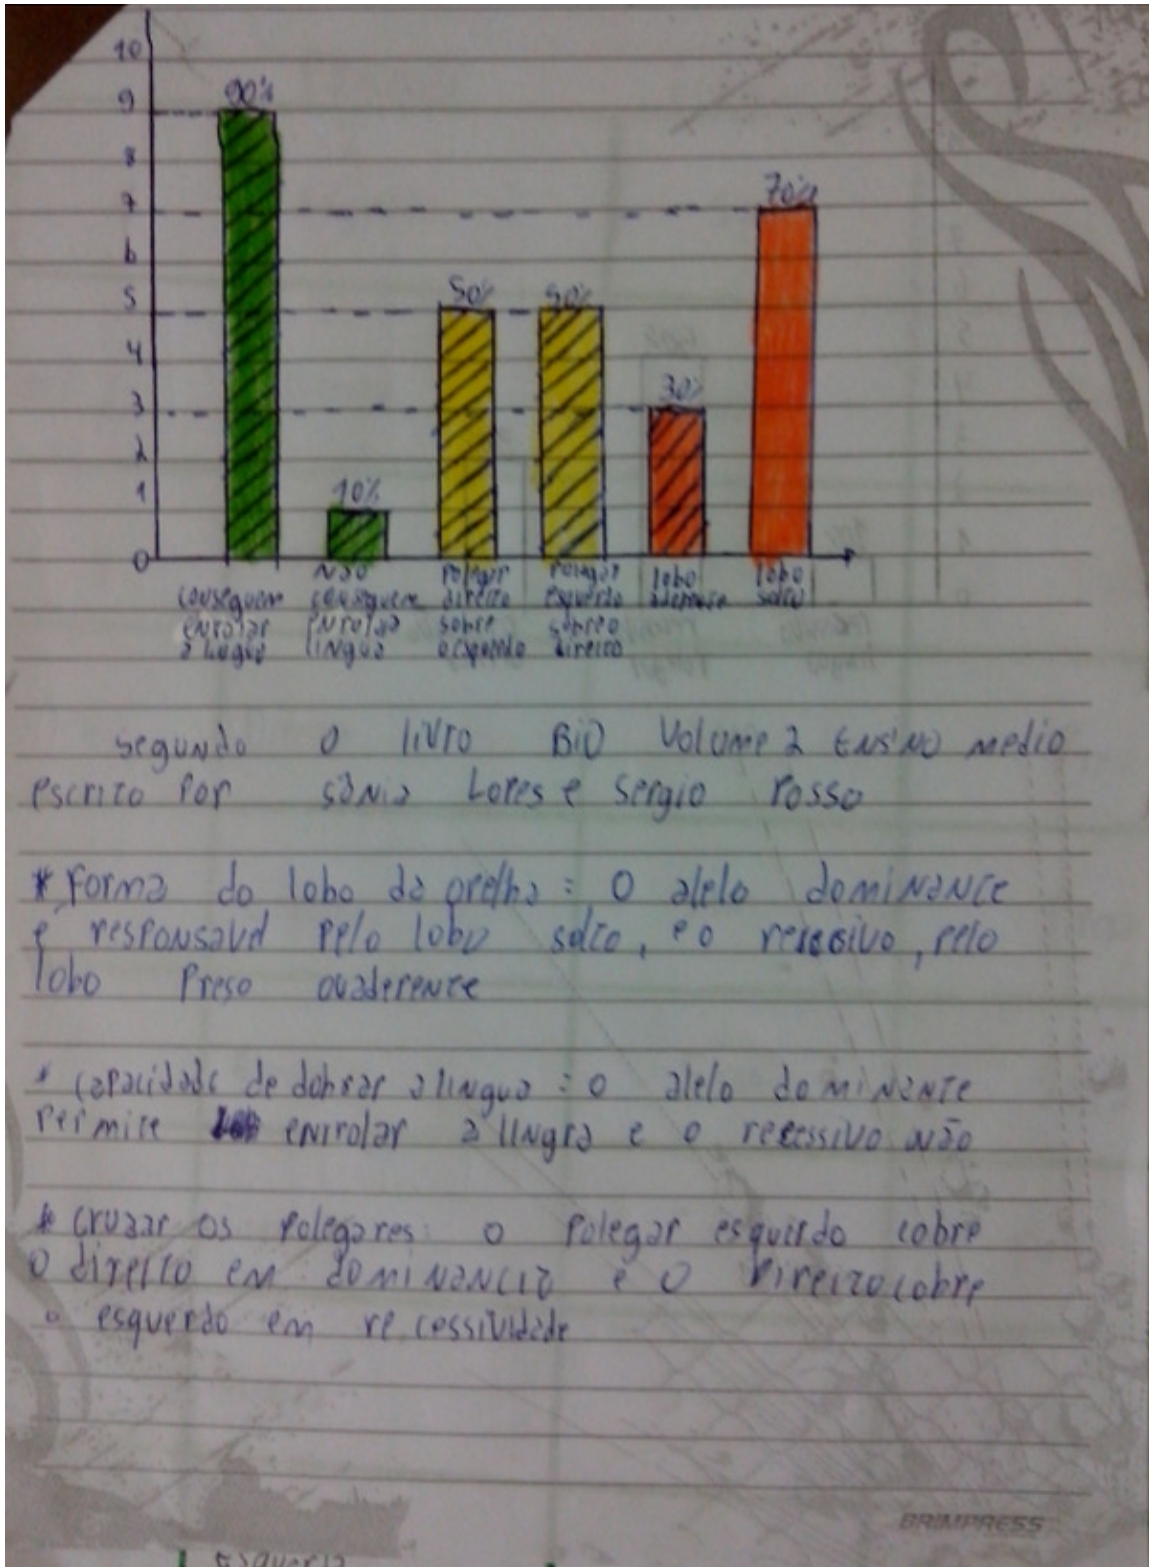 10
9
8
7
6
5
4
3
2
1
0
90%
10%
50%
50%
30%
70%
conseguem
enrolar
a língua
Não
conseguem
enrolar
língua
Polegar
direito
sobre
o esquerdo
Polegar
esquerdo
sobre o
direito
lobo
aderente
lobo
solto
segundo o livro BIO Volume 2 Ensino medio
escrito Por sônia Lopes e sergio rosso
* forma do lobo da orelha = O alelo dominante
é responsavel pelo lobo solto, e o recessivo, pelo
lobo Preso ou aderente
* capacidade de dobrar a lingua = o alelo dominante
Permite enrolar a lingra e o recessivo não
* cruzar os polegares o polegar esquerdo cobre
O direito em dominancia e O Direito cobre
o esquerdo em recessividade
BRIMPRESS